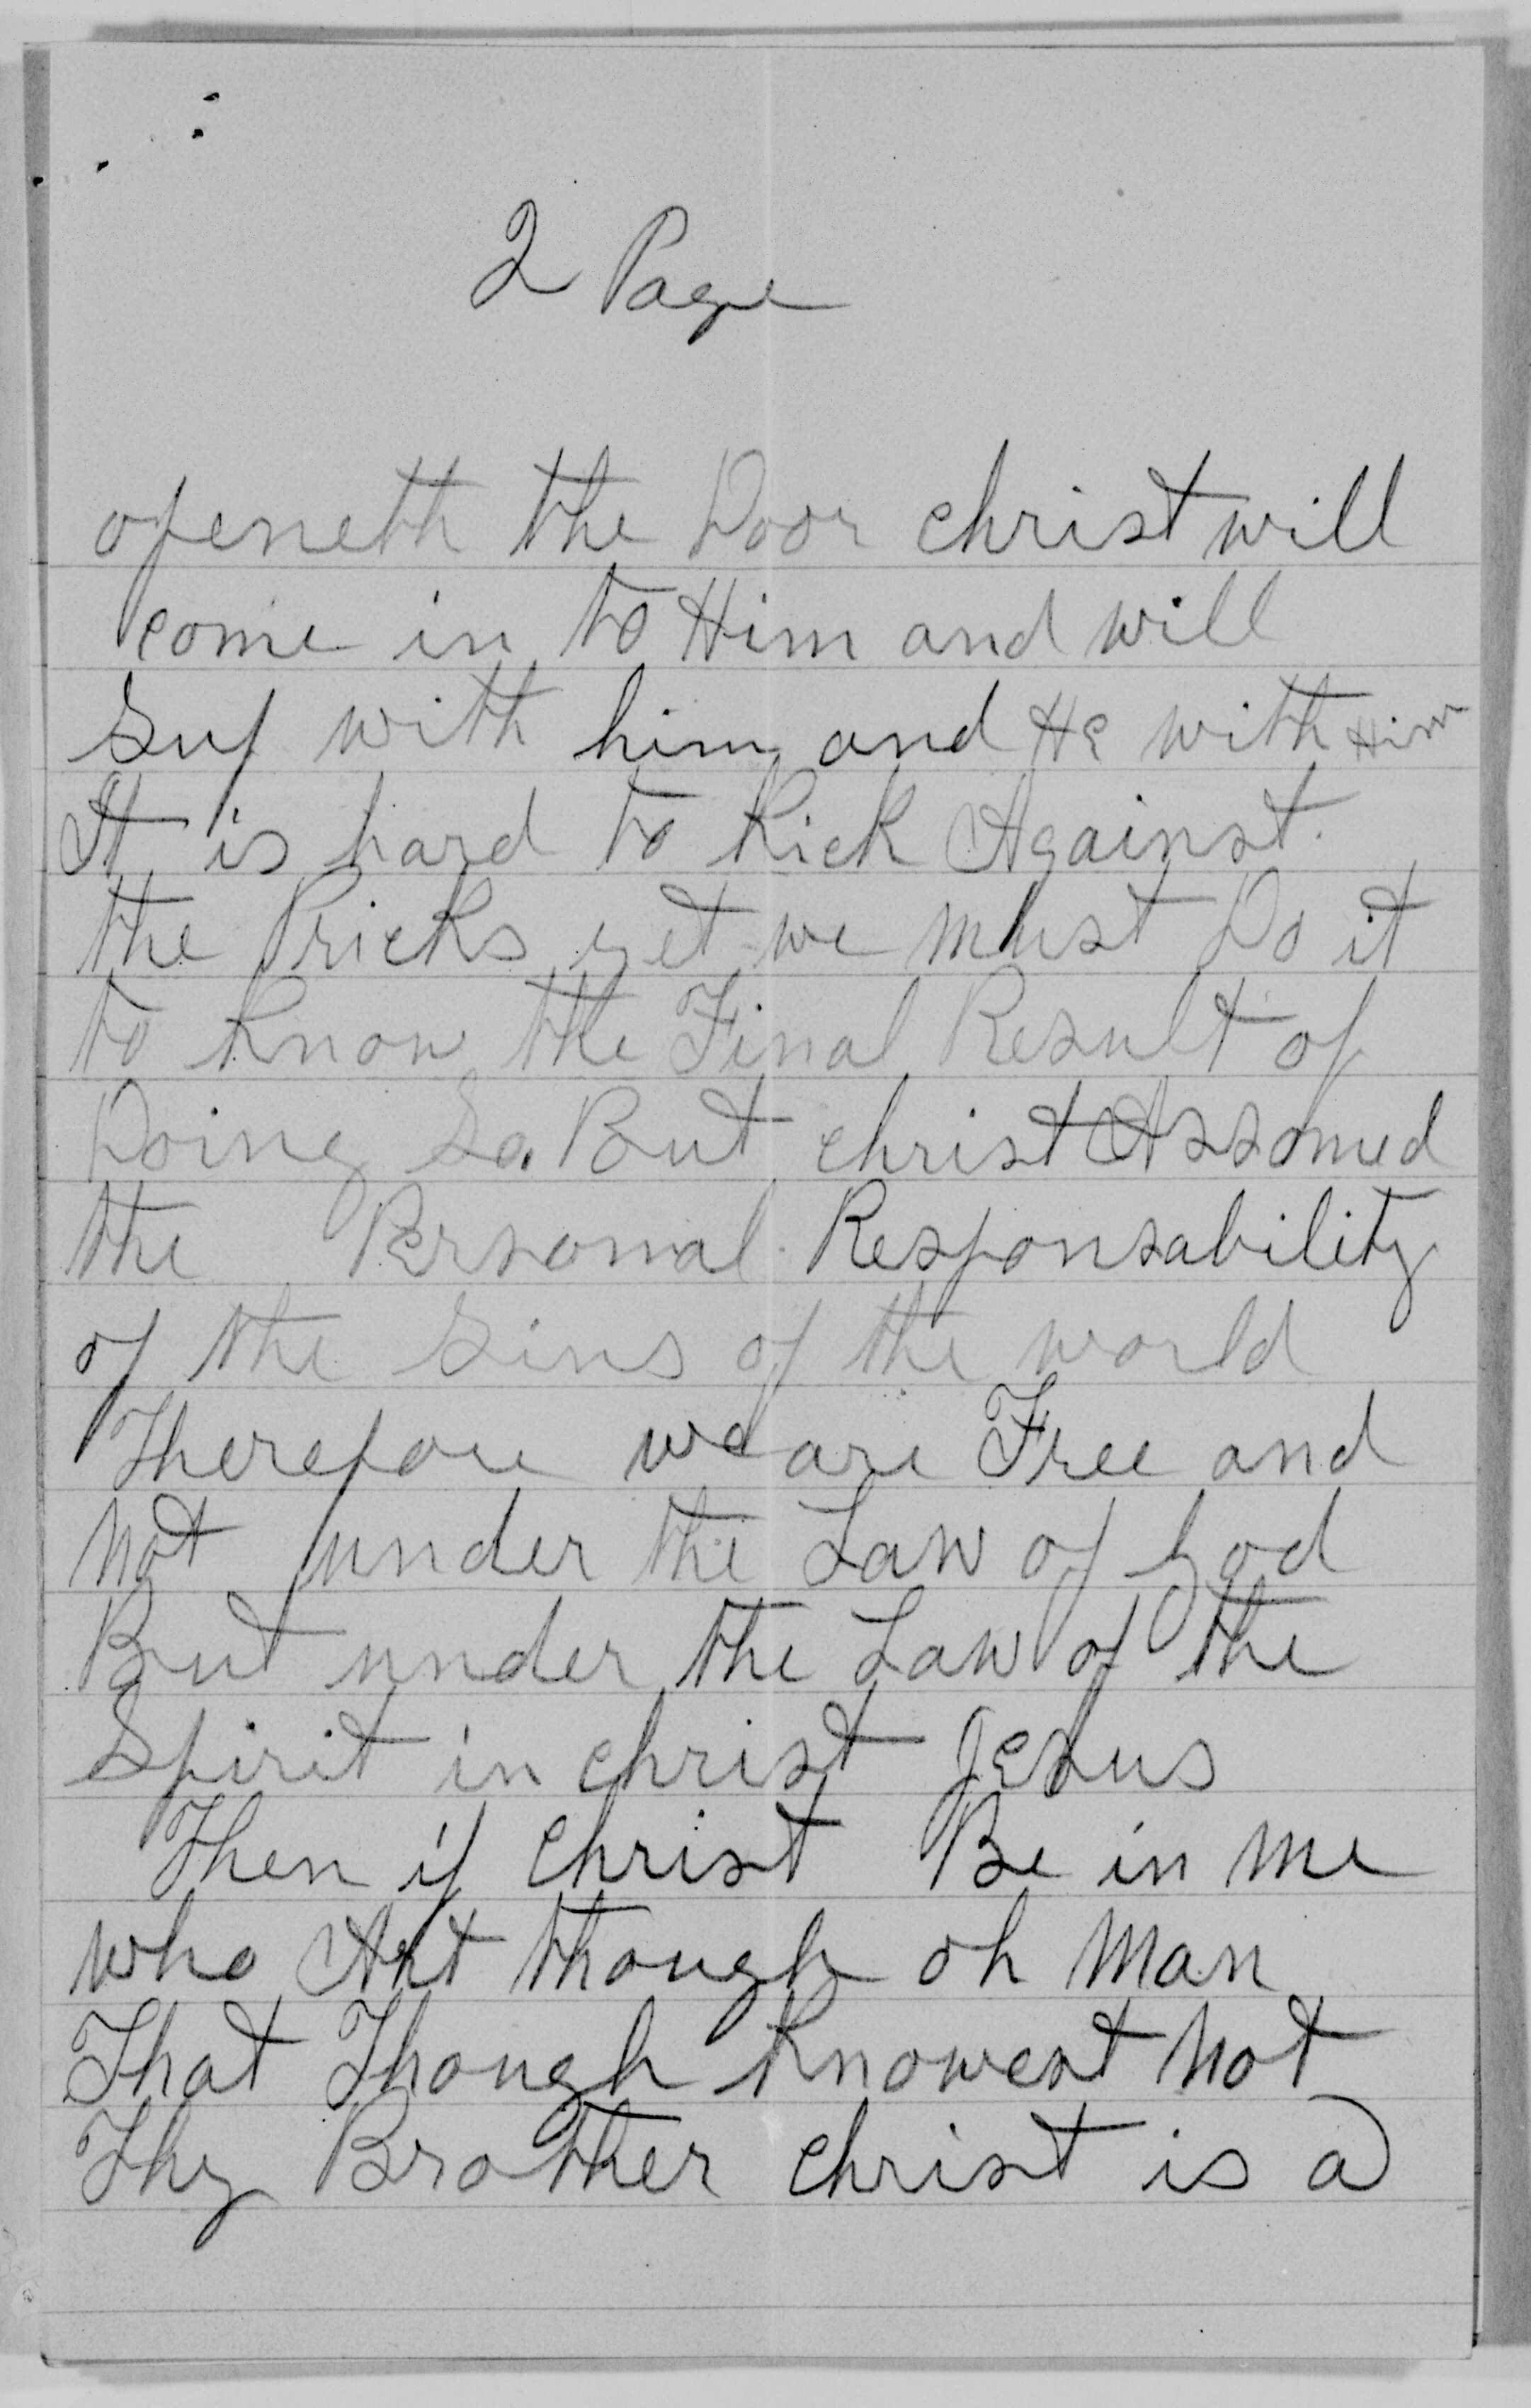 2 Page
openeth the Door christ will
come in to Him and will
Sup with him and He with Him
It is hard to Kick Against
the Pricks yet we must Do it
to Know the Final Result of
Doing So. But christ Assomed
the Personal Responsability
of the Sins of the world
Therefore we are Free and
Not under the Law of God
But under the Law of the
Spirit in christ Jesus
Then if christ Be in me
who Art though oh Man
That Though Knowest Not
Thy Brother christ is a